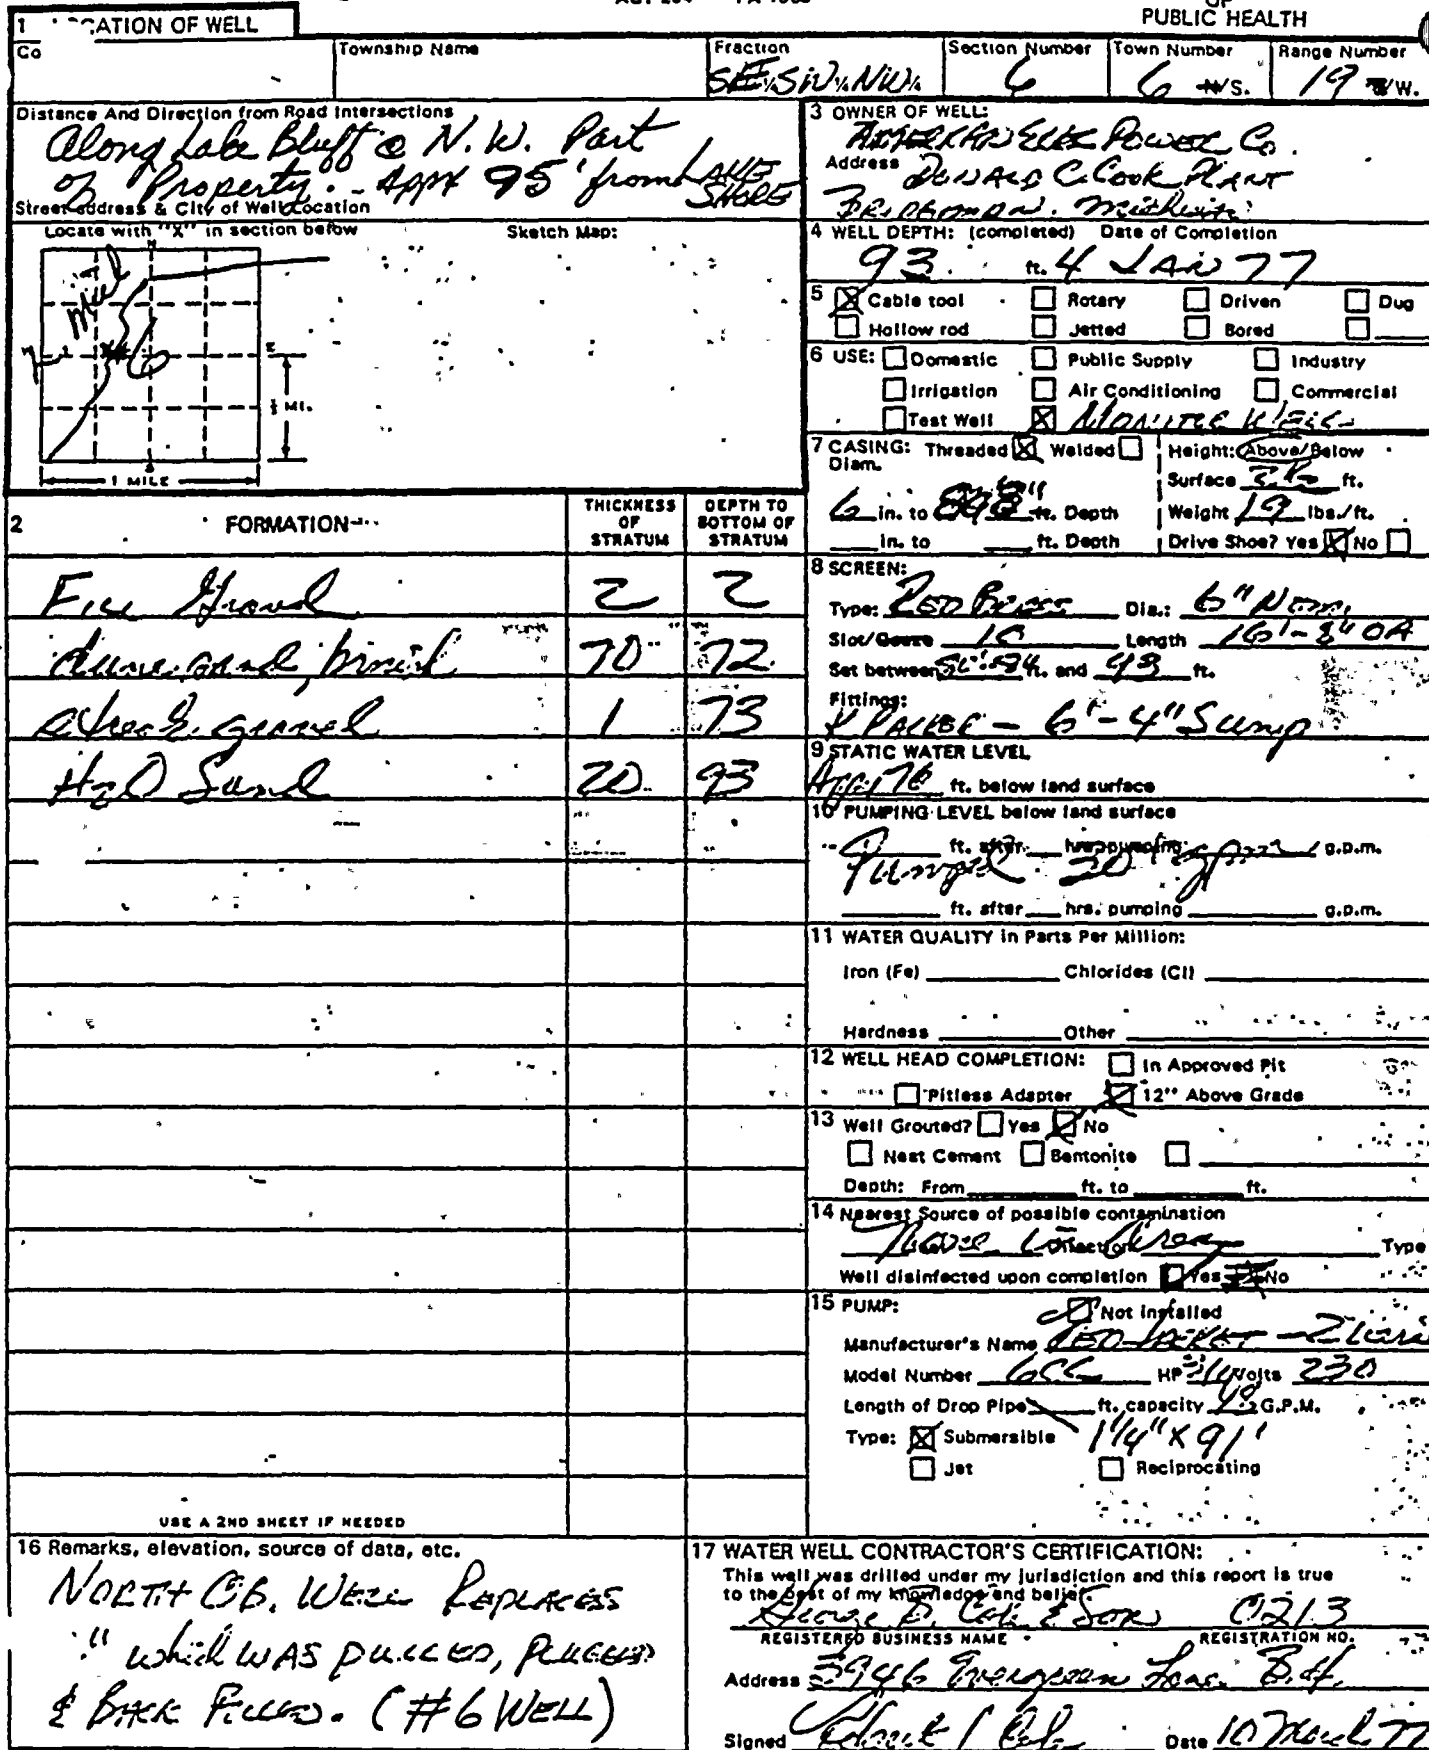 PUBLIC HEALTH
1 CATION OF WELL
Co
Township Name
Fraction
SE¼SW¼NW¼
Section Number
6
Town Number
6 N/S.
Range Number
19 E/W.
Distance And Direction from Road Intersections
Along Lake Bluff @ N.W. Part
of Property. - Appx 95' from LAKE
SHORE
Street address & City of Well Location
Locate with "X" in section below
Sketch Map:
N
W
E
6
½ MI.
1 MILE
3 OWNER OF WELL:
AMERICAN ELEC POWER Co.
Address DONALD C. COOK PLANT
BRIDGMAN. Michigan
4 WELL DEPTH: (completed) Date of Completion
93 ft. 4 JAN 77
5 Cable tool Rotary Driven Dug
Hollow rod Jetted Bored
6 USE: Domestic Public Supply Industry
Irrigation Air Conditioning Commercial
Test Well MONITOR WELL
7 CASING: Threaded Welded
Diam.
6 in. to ft. Depth
in. to ft. Depth
Height: Above/Below
Surface ft.
Weight 19 lbs./ft.
Drive Shoe? Yes No
2 FORMATION
THICKNESS OF STRATUM
DEPTH TO BOTTOM OF STRATUM
2 2
dune sand, 70 72
gravel 1 73
H2O Sand 20 93
8 SCREEN:
Type: RED BRASS Dia.: 6" Nom.
Slot/Gauze 10 Length 16'-8" OA
Set between ft. and 93 ft.
Fittings:
K PACKER - 6'-4" Sump
9 STATIC WATER LEVEL
76 ft. below land surface
10 PUMPING LEVEL below land surface
ft. after hrs. pumping g.p.m.
Pumped 20 gpm
ft. after hrs. pumping g.p.m.
11 WATER QUALITY in Parts Per Million:
Iron (Fe) Chlorides (Cl)
Hardness Other
12 WELL HEAD COMPLETION: In Approved Pit
Pitless Adapter 12" Above Grade
13 Well Grouted? Yes No
Neat Cement Bentonite
Depth: From ft. to ft.
14 Nearest Source of possible contamination
None in Area Direction Type
Well disinfected upon completion Yes No
15 PUMP: Not installed
Manufacturer's Name RED JACKET
Model Number HP 3/4 Volts 230
Length of Drop Pipe ft. capacity G.P.M.
Type: Submersible 1¼" X 91'
Jet Reciprocating
USE A 2ND SHEET IF NEEDED
16 Remarks, elevation, source of data, etc.
NORTH OB. WELL REPLACES
" which WAS PULLED, PLUGGED
& BACK FILLED. (#6 WELL)
17 WATER WELL CONTRACTOR'S CERTIFICATION:
This well was drilled under my jurisdiction and this report is true
to the best of my knowledge and belief.
& Son 0213
REGISTERED BUSINESS NAME REGISTRATION NO.
Address 3946 Evergreen Lane B.H.
Signed Date 10 March 77